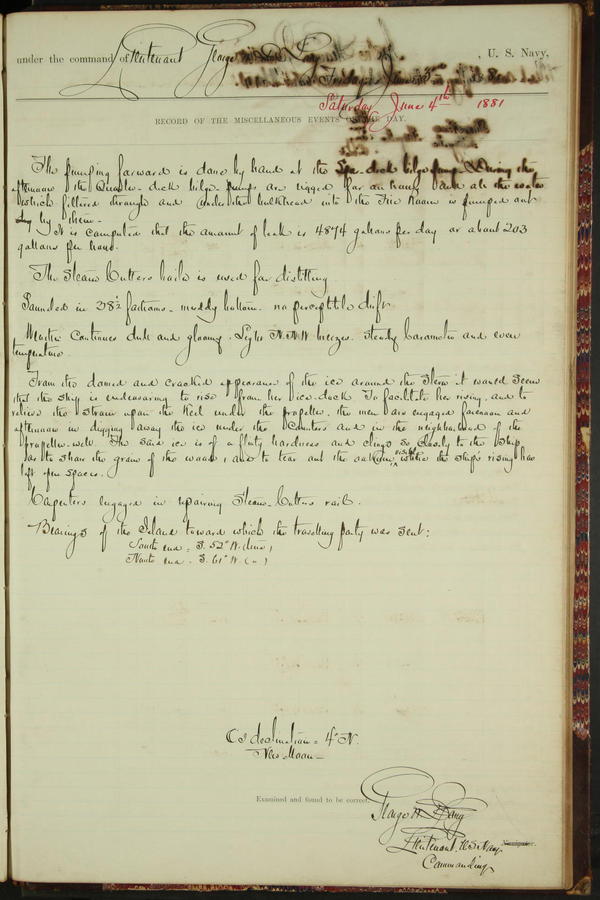 under the command of Lieutenant George W. De Long , U. S. Navy,
Saturday June 4th 1881
RECORD OF THE MISCELLANEOUS EVENTS OF THE DAY.
The pumping forward is done by hand at the Spar-deck bilge pump. During the
afternoon the Quarter-deck bilge-pumps are rigged for an hour and all the water
which filtered through and under the bulkhead into the Fire Room is pumped out
by them.
It is computed that the amount of leak is 4874 gallons per day or about 203
gallons per hour.
The Steam Cutter's boiler is used for distilling
Sounded in 38½ fathoms. muddy bottom. no perceptible drift
Weather continues dull and gloomy. Light N.N.W breezes. Steady barometer and even
temperature.
From the domed and cracked appearance of the ice around the Stern it would seem
that the ship is endeavoring to rise from her ice-dock. To facilitate her rising, and to
relieve the strain upon the Keel under the propeller, the men are engaged forenoon and
afternoon in digging away the ice under the Counters and in the neighborhood of the
propeller-well. The said ice is of a flinty hardness and clings so closely to the Ship
as to show the grain of the wood, and to tear out the oakum where the ship's rising has
left open spaces.
Carpenters engaged in repairing Steam-Cutters rail.
Bearings of the Island toward which the travelling party was sent:
South end = S. 52° W. (true)
North end = S. 61° W. ( " )
C's declination = 4° N.
New Moon
Examined and found to be correct.
George W. De Long
Lieutenant, U.S Navy Navigator.
Commanding